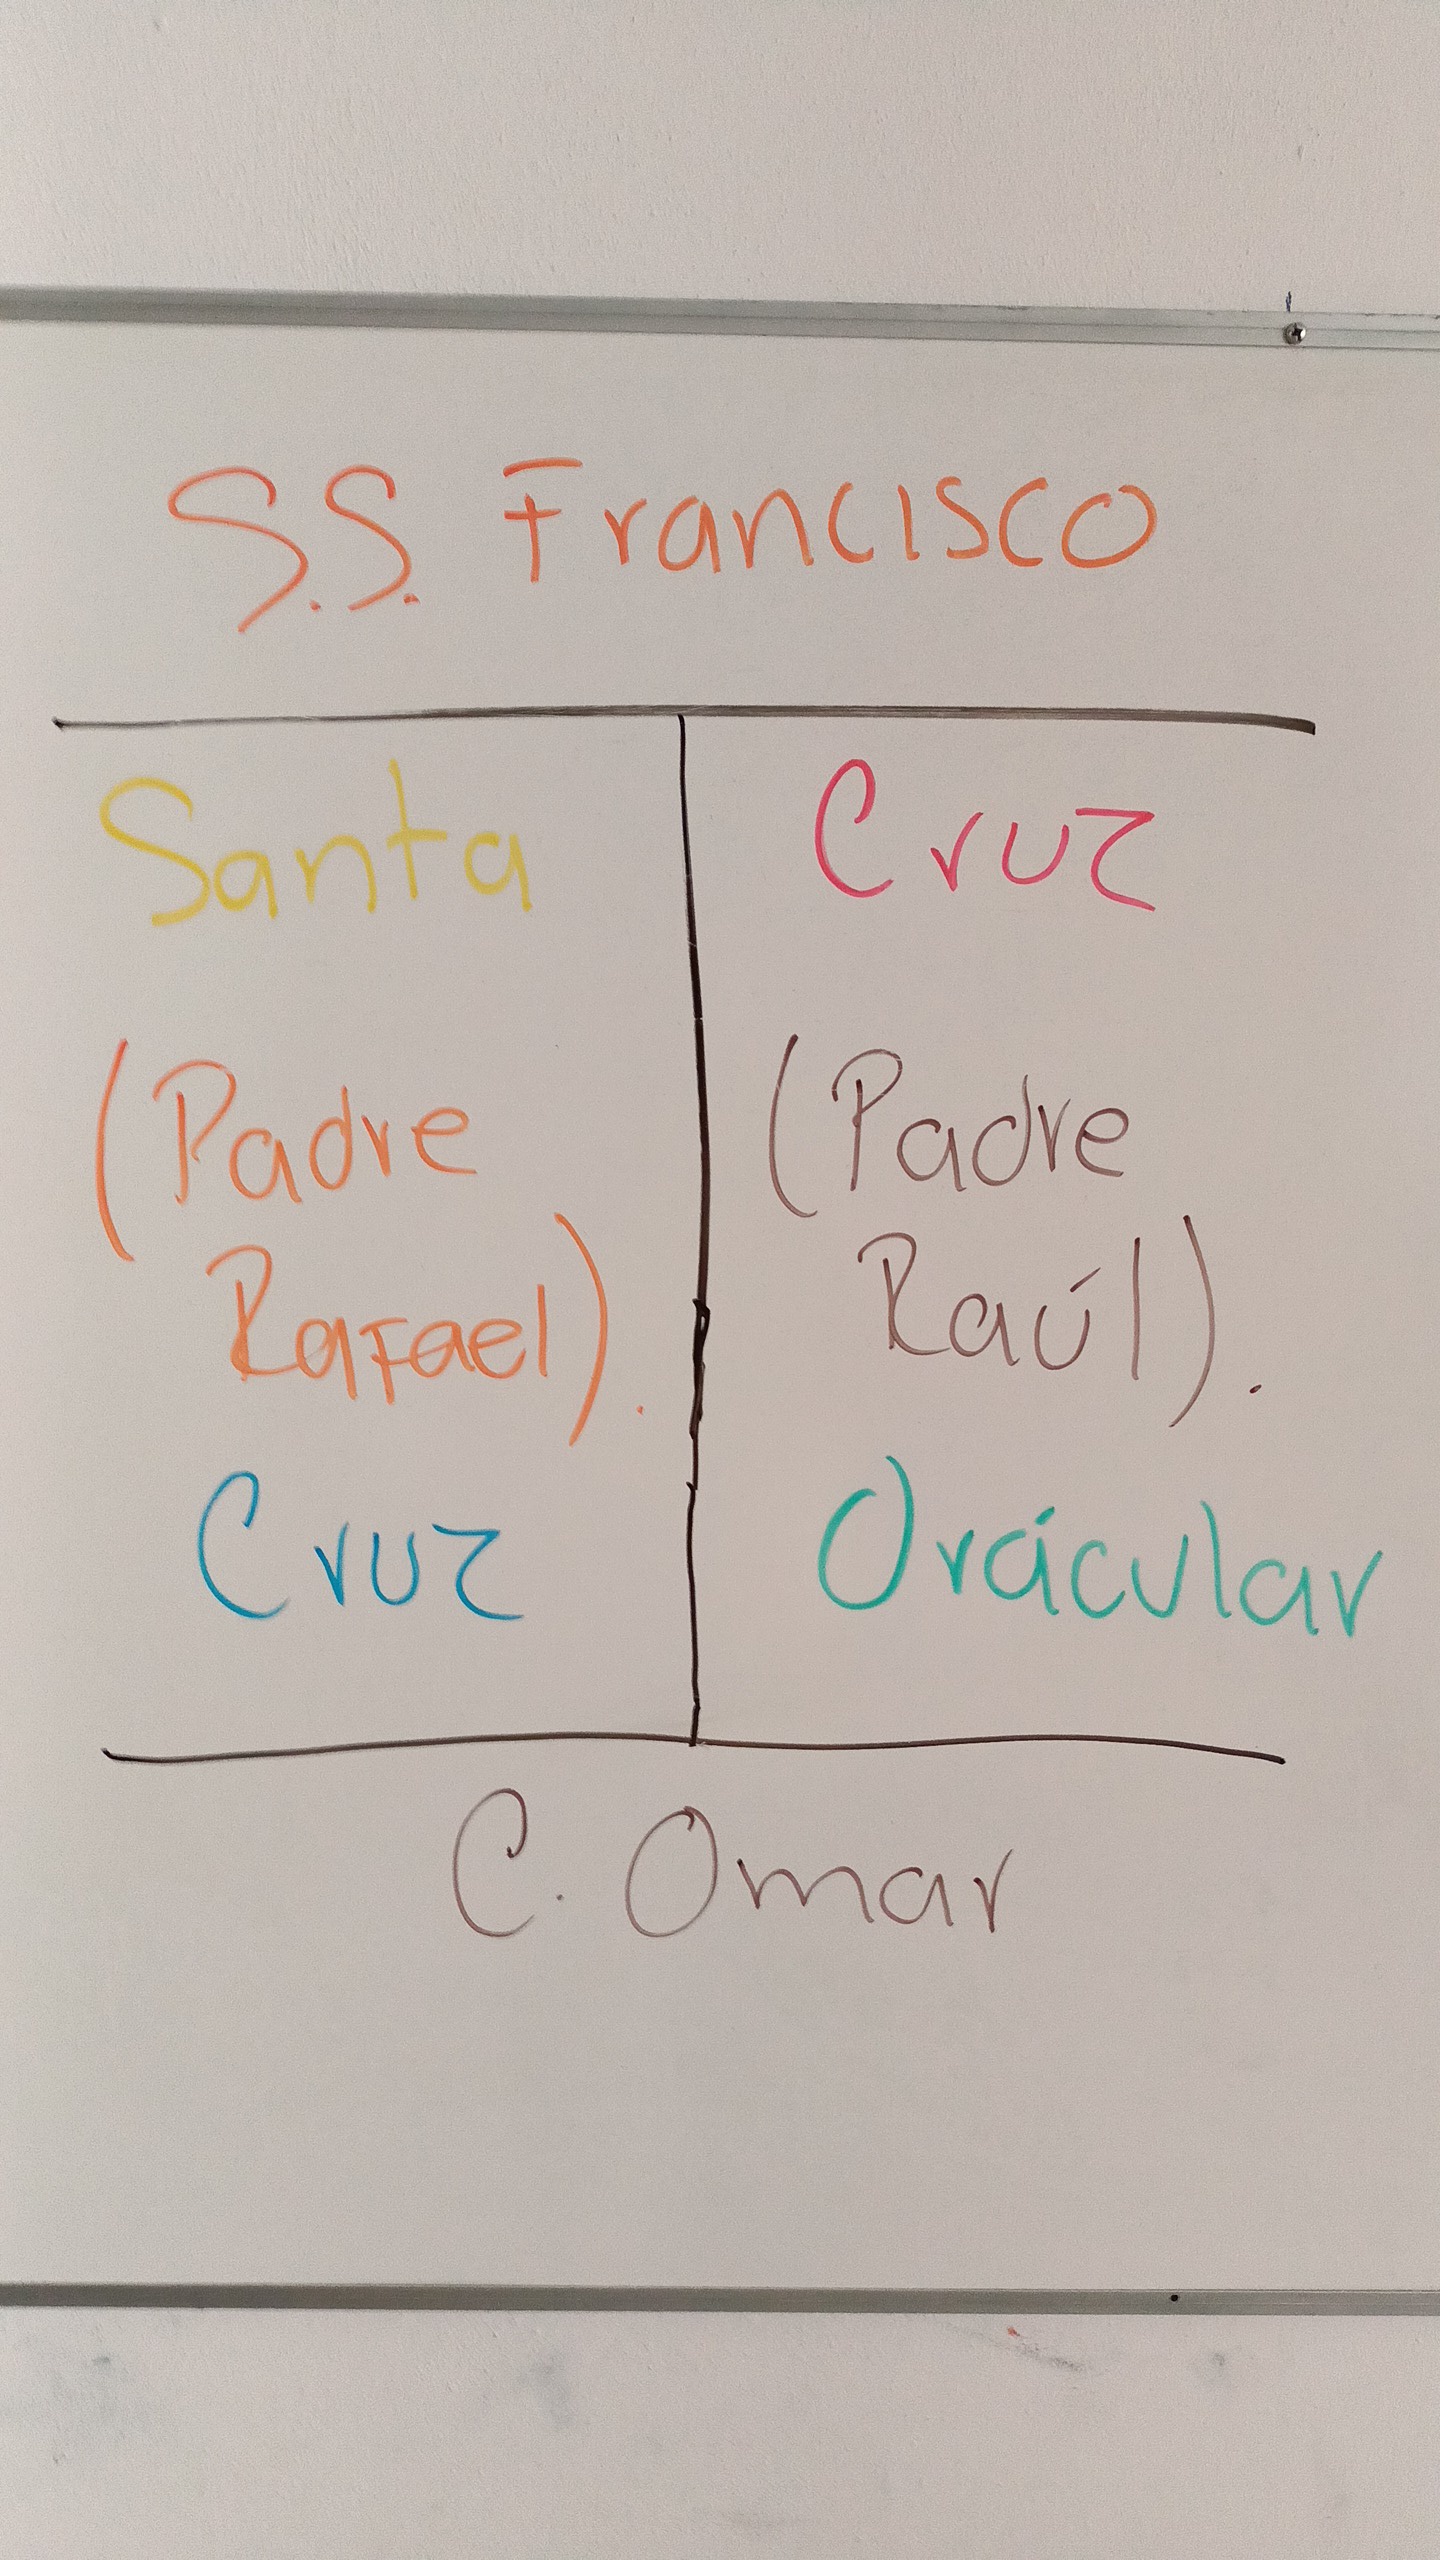 S.S. Francisco
Santa
Cruz
(Padre
Rafael).
(Padre
Raúl).
Cruz
Orácular
C. Omar